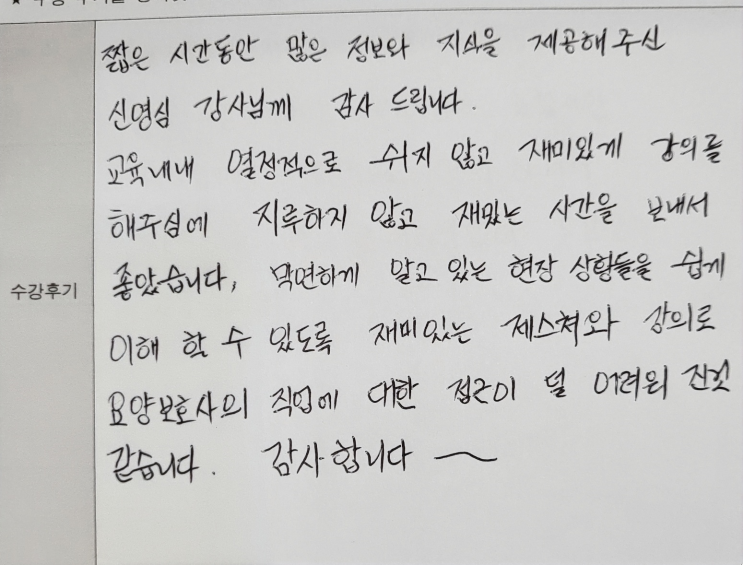 짧은 시간동안 많은 정보와 지식을 제공해 주신
신영심 강사님께 감사 드립니다.
교육내내 열정적으로 쉬지 않고 재미있게 강의를
해주심에 지루하지 않고 재밌는 시간을 보내서
좋았습니다, 막연하게 알고 있는 현장 상황들을 쉽게
수강후기
이해 할 수 있도록 재미있는 제스쳐와 강의로
요양보호사의 직업에 대한 접근이 덜 어려워 진것
같습니다. 감사합니다 ~